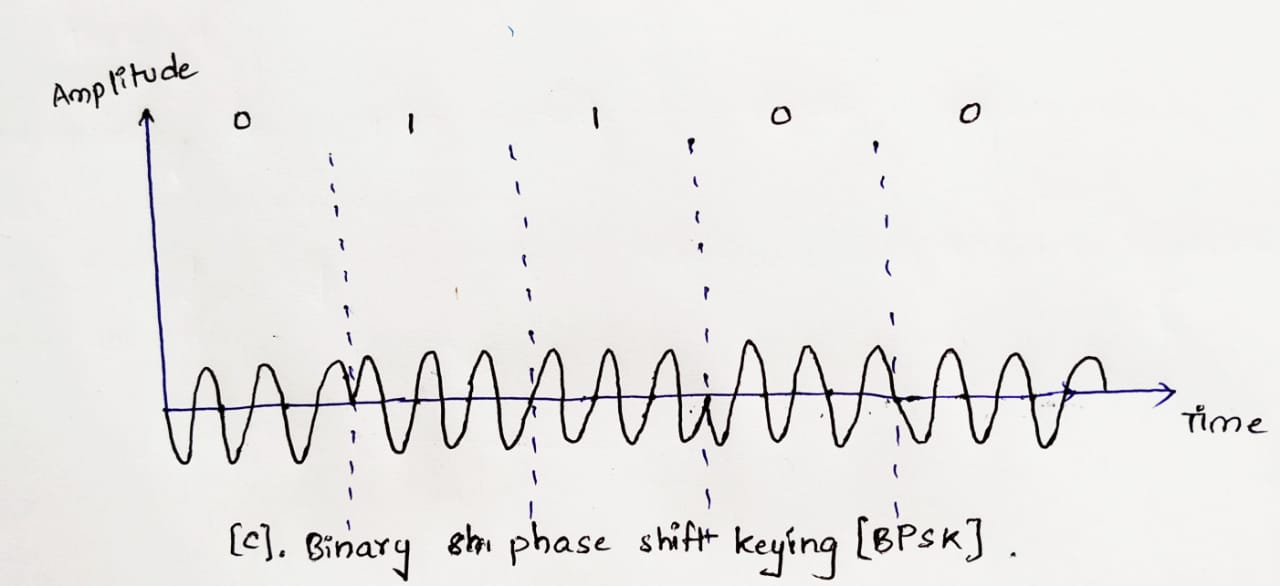 Amplitude
0 1 1 0 0
Time
[C]. Binary phase shift keying [BPSK].